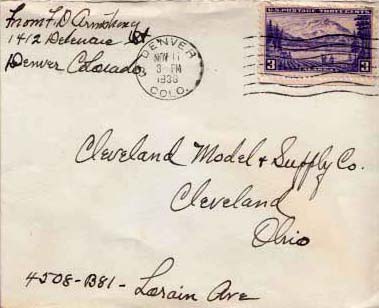 From F. D. Armstrong
1412 Delaware St
Denver Colorado
DENVER
NOV 11
3 PM
1938
COLO.
U.S. POSTAGE THREE CENTS
3 3
Cleveland Model & Supply Co.
Cleveland
Ohio
4508-B81- Lorain Ave